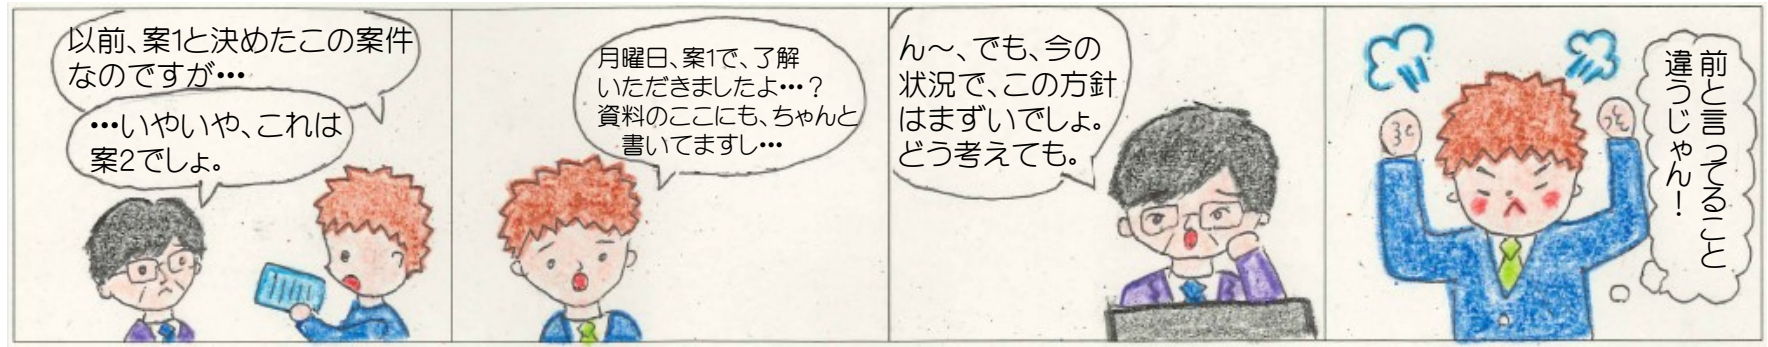 以前、案1と決めたこの案件
なのですが•••
•••いやいや、これは
案2でしょ。
月曜日、案1で、了解
いただきましたよ•••?
資料のここにも、ちゃんと
書いてますし•••
ん～、でも、今の
状況で、この方針
はまずいでしょ。
どう考えても。
前と言ってること
違うじゃん!